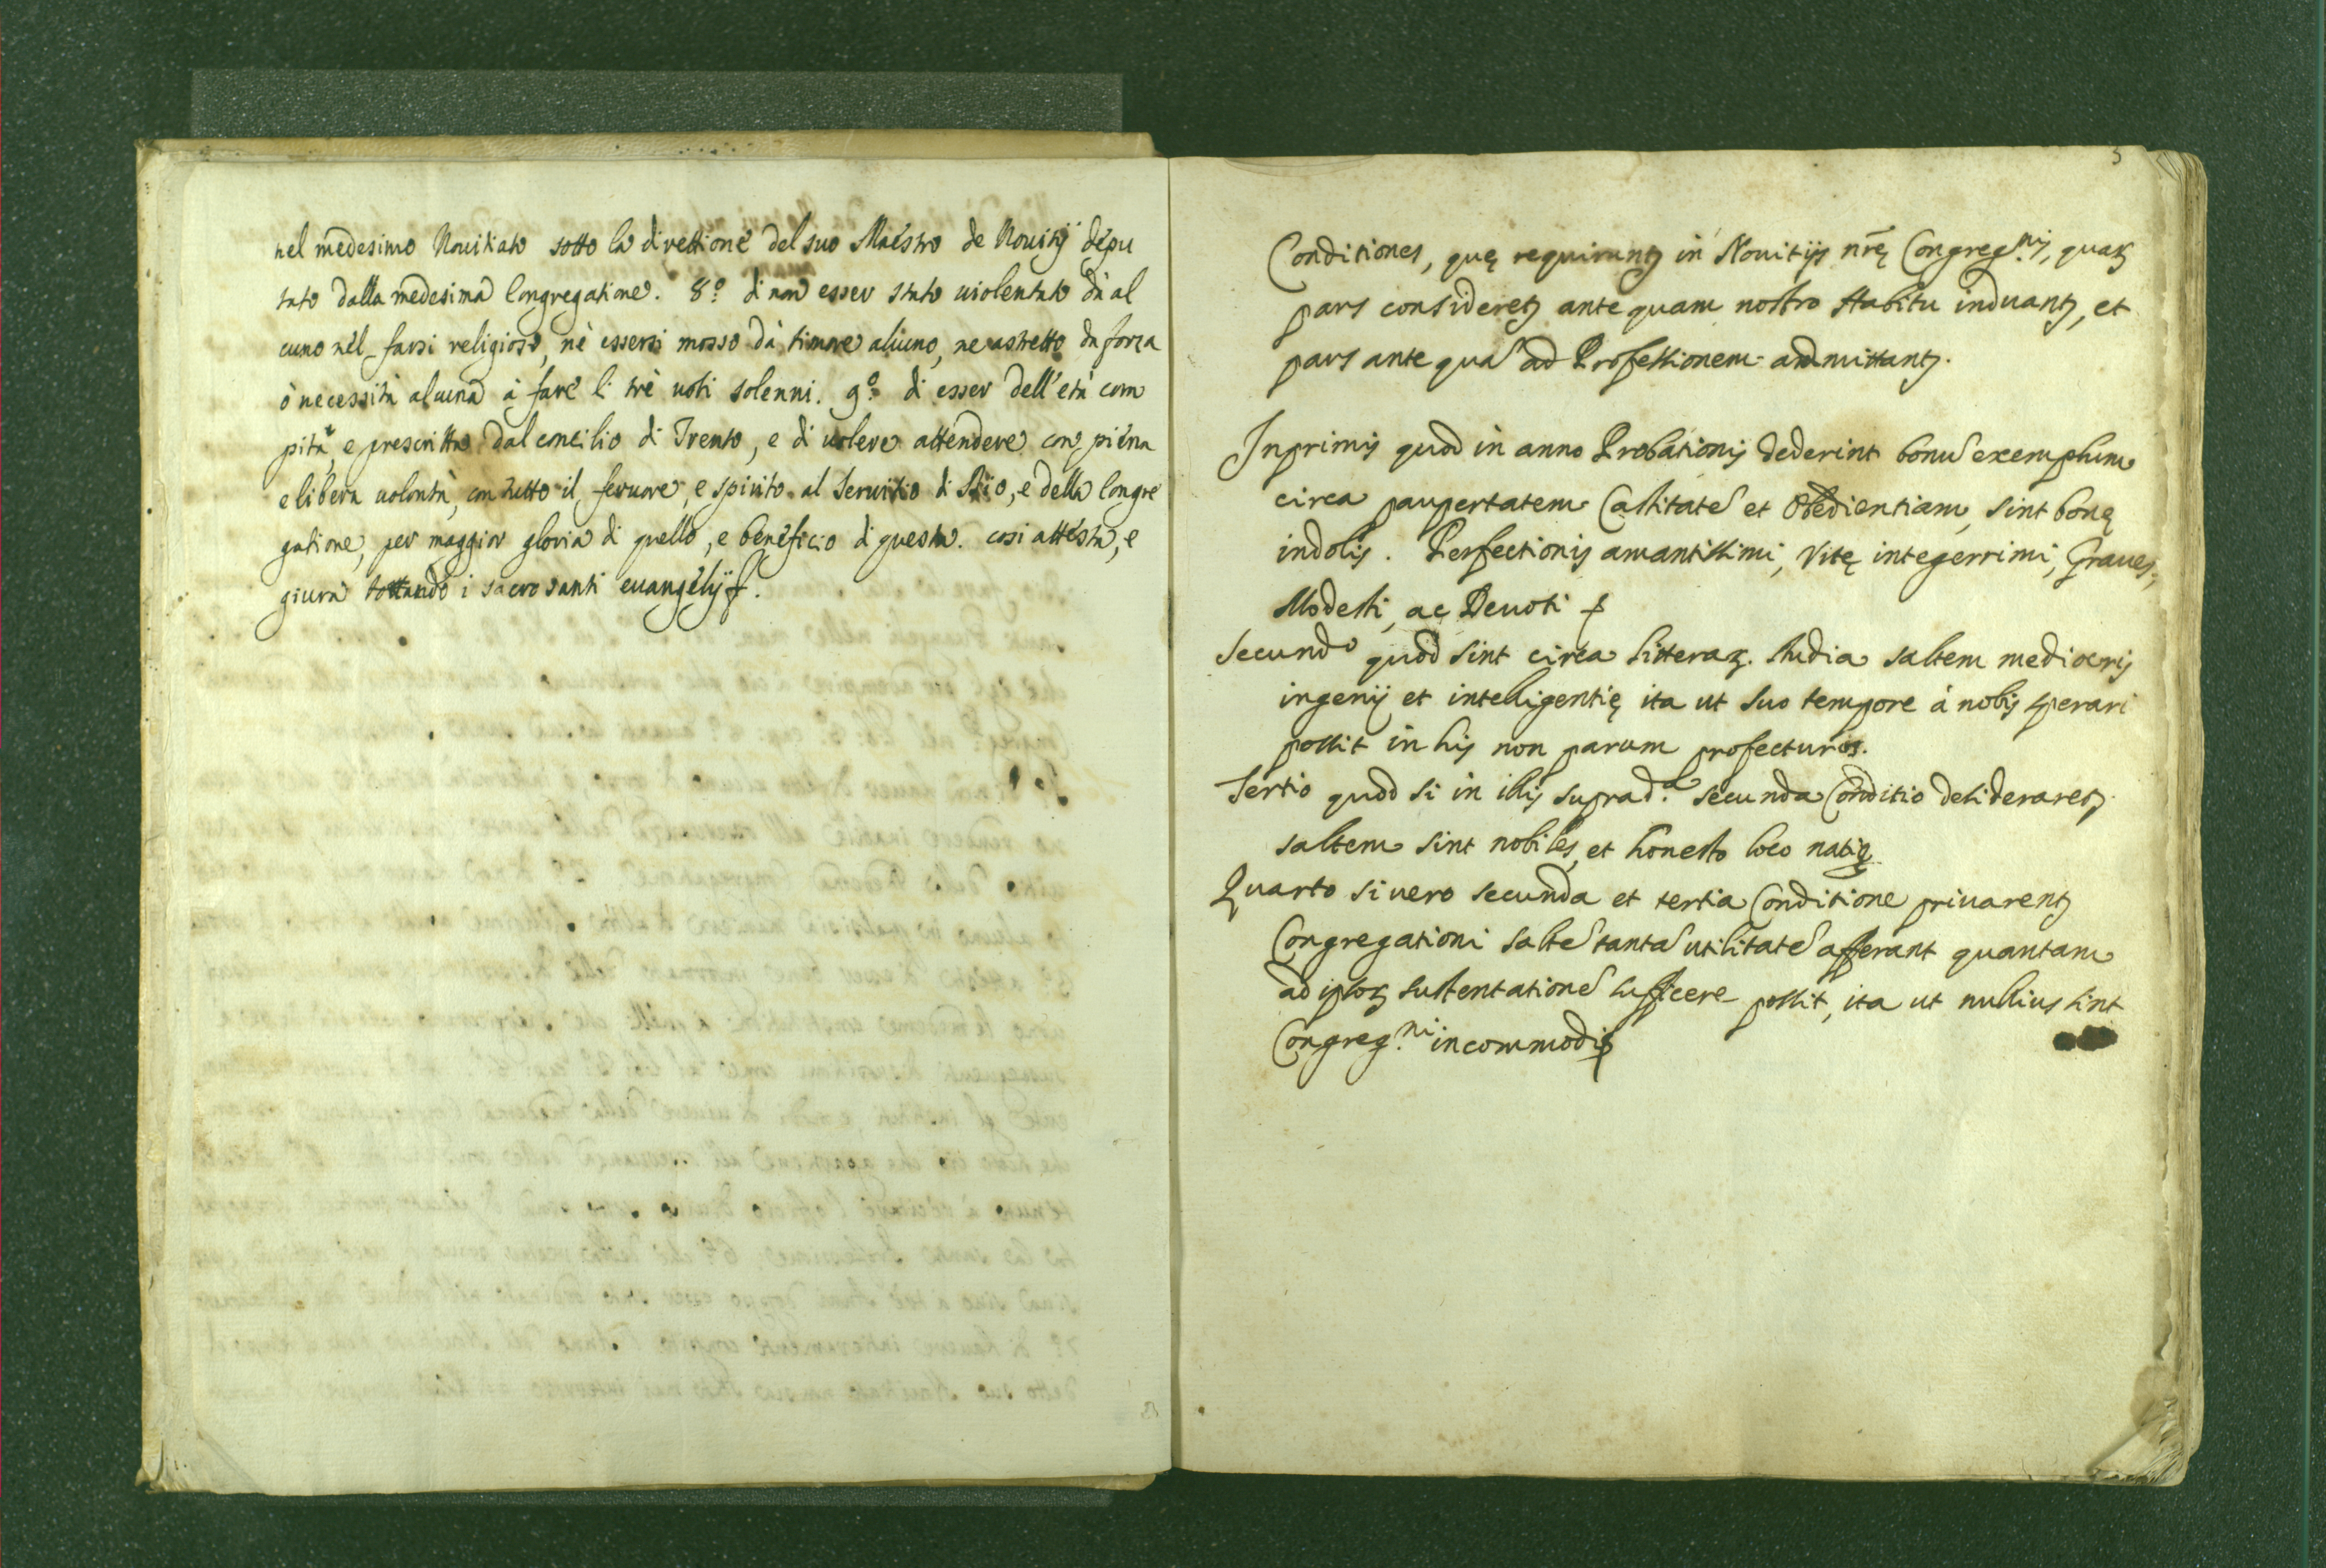 nel medesimo Nouitiato sotto la direttione del suo Maestro de Nouitij depu
tato dalla medesima Congregatione. 8.º di non esser stato uiolentato da al
cuno nel farsi religioso, nè essersi mosso dà timore alcuno, ne astretto da forza
ò necessità alcuna à fare li trè uoti solenni. 9.º di esser dell'età com
pita, e prescritta dal concilio di Trento, e di uolere attendere con piena
e libera uolontà, con tutto il feruore, e spirito al Seruitio di Dio, e della Congre
gatione, per maggior gloria di quello, e beneficio di questa. cosi attesta, e
giura toccando i sacrosanti euangelij
3
Conditiones, quę requirunt in Nouitijs nrę Congreg.nis, quaꝝ
pars consideret ante quam nostro Habitu induant, et
pars ante quā ad Professionem admittant.
Inprimis quod in anno Probationis dederint bonū exemplum
circa paupertatem Castitatē et Obedientiam, sint bonę
indolis. Perfectionis amantissimi, Vitę integerrimi, Graues,
Modesti, ac Deuoti
Secundo quod sint circa litteraꝝ. studia saltem mediocris
ingenij et intelligentię ita ut suo tempore à nobis sperari
possit in his non parum profecturos.
Tertio quod si in illis suprad.a secunda Conditio desideraret
saltem sint nobiles, et honesto loco nati
Quarto si uero secunda et tertia Conditione priuarent
Congregationi saltē tantā utilitatē afferant quantam
ad ipsoꝝ sustentationē sufficere possit, ita ut nullius sint
Congreg.ni incommodi